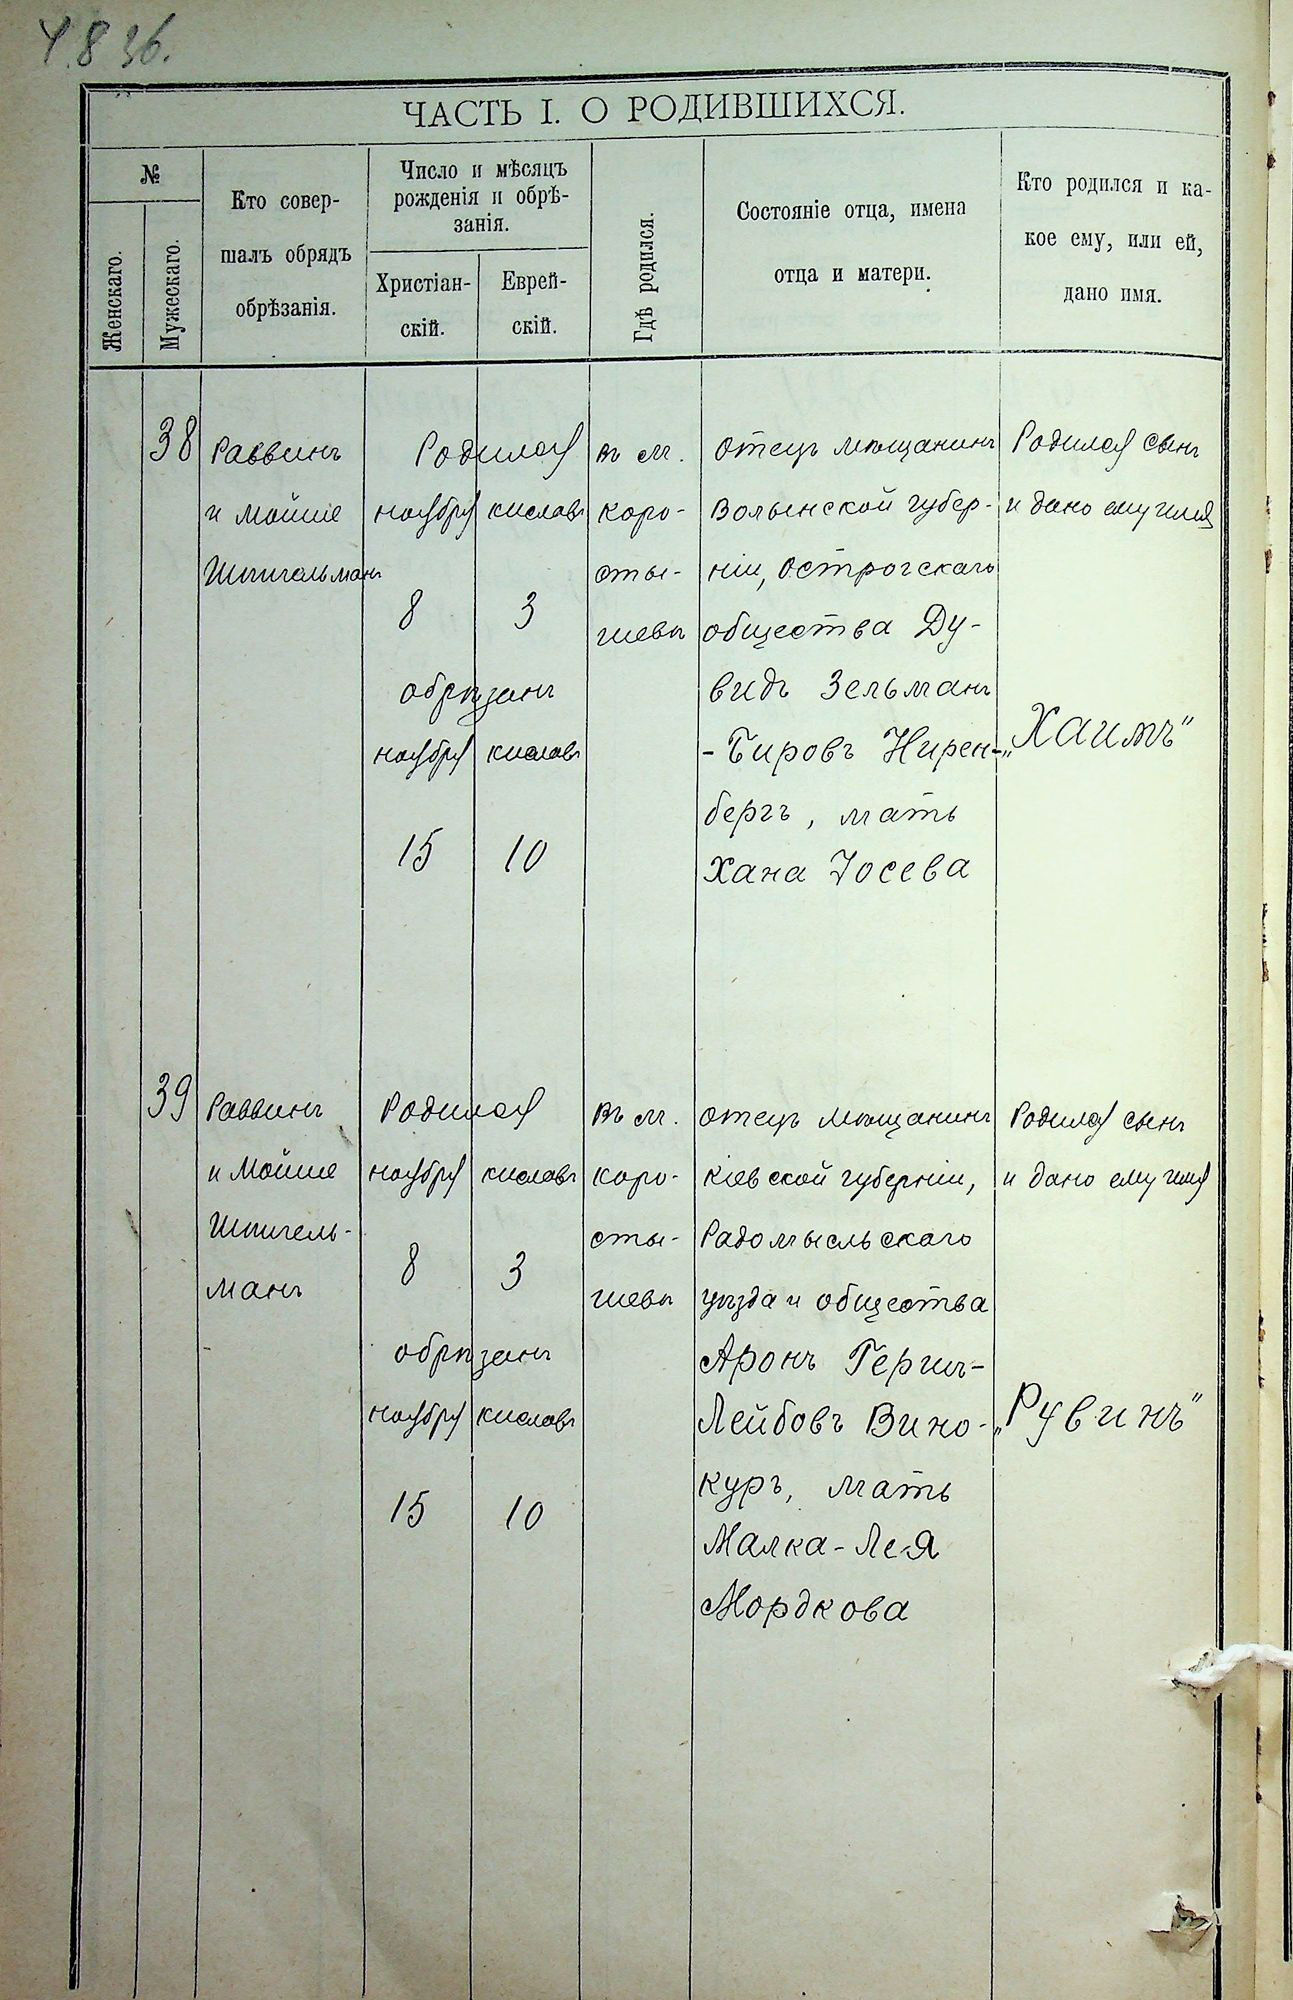 836.
ЧАСТЬ I. О РОДИВШИХСЯ.
№
Женскаго.
Мужескаго.
Кто совер-
шалъ обрядъ
обрѣзанія.
Число и мѣсяцъ
рожденія и обрѣ-
занія.
Христіан-
скій.
Еврей-
скій.
Гдѣ родился.
Состояніе отца, имена
отца и матери.
Кто родился и ка-
кое ему, или ей,
дано имя.
38
Раввинъ
и Мойше
Шпигельманъ
Родился
ноября кислевъ
8 3
обрѣзанъ
ноября кислевъ
15 10
въ м.
Коро-
сты-
шевѣ
отецъ мѣщанинъ
Волынской губер-
ніи, Острогскаго
общества Ду-
видъ Зельман
-Бировъ Нирен-
бергъ, мать
Хана Іосева
Родился сынъ
и дано ему имя
„Хаимъ"
39
Раввинъ
и Мойше
Шпигель-
манъ
Родился
ноября кислевъ
8 3
обрѣзанъ
ноября кислевъ
15 10
въ м.
Коро-
сты-
шевѣ
отецъ мѣщанинъ
Кіевской губерніи,
Радомысльскаго
уѣзда и общества
Аронъ Герш-
Лейбовъ Вино-
куръ, мать
Малка-Лея
Мордкова
Родился сынъ
и дано ему имя
„Рувинъ"